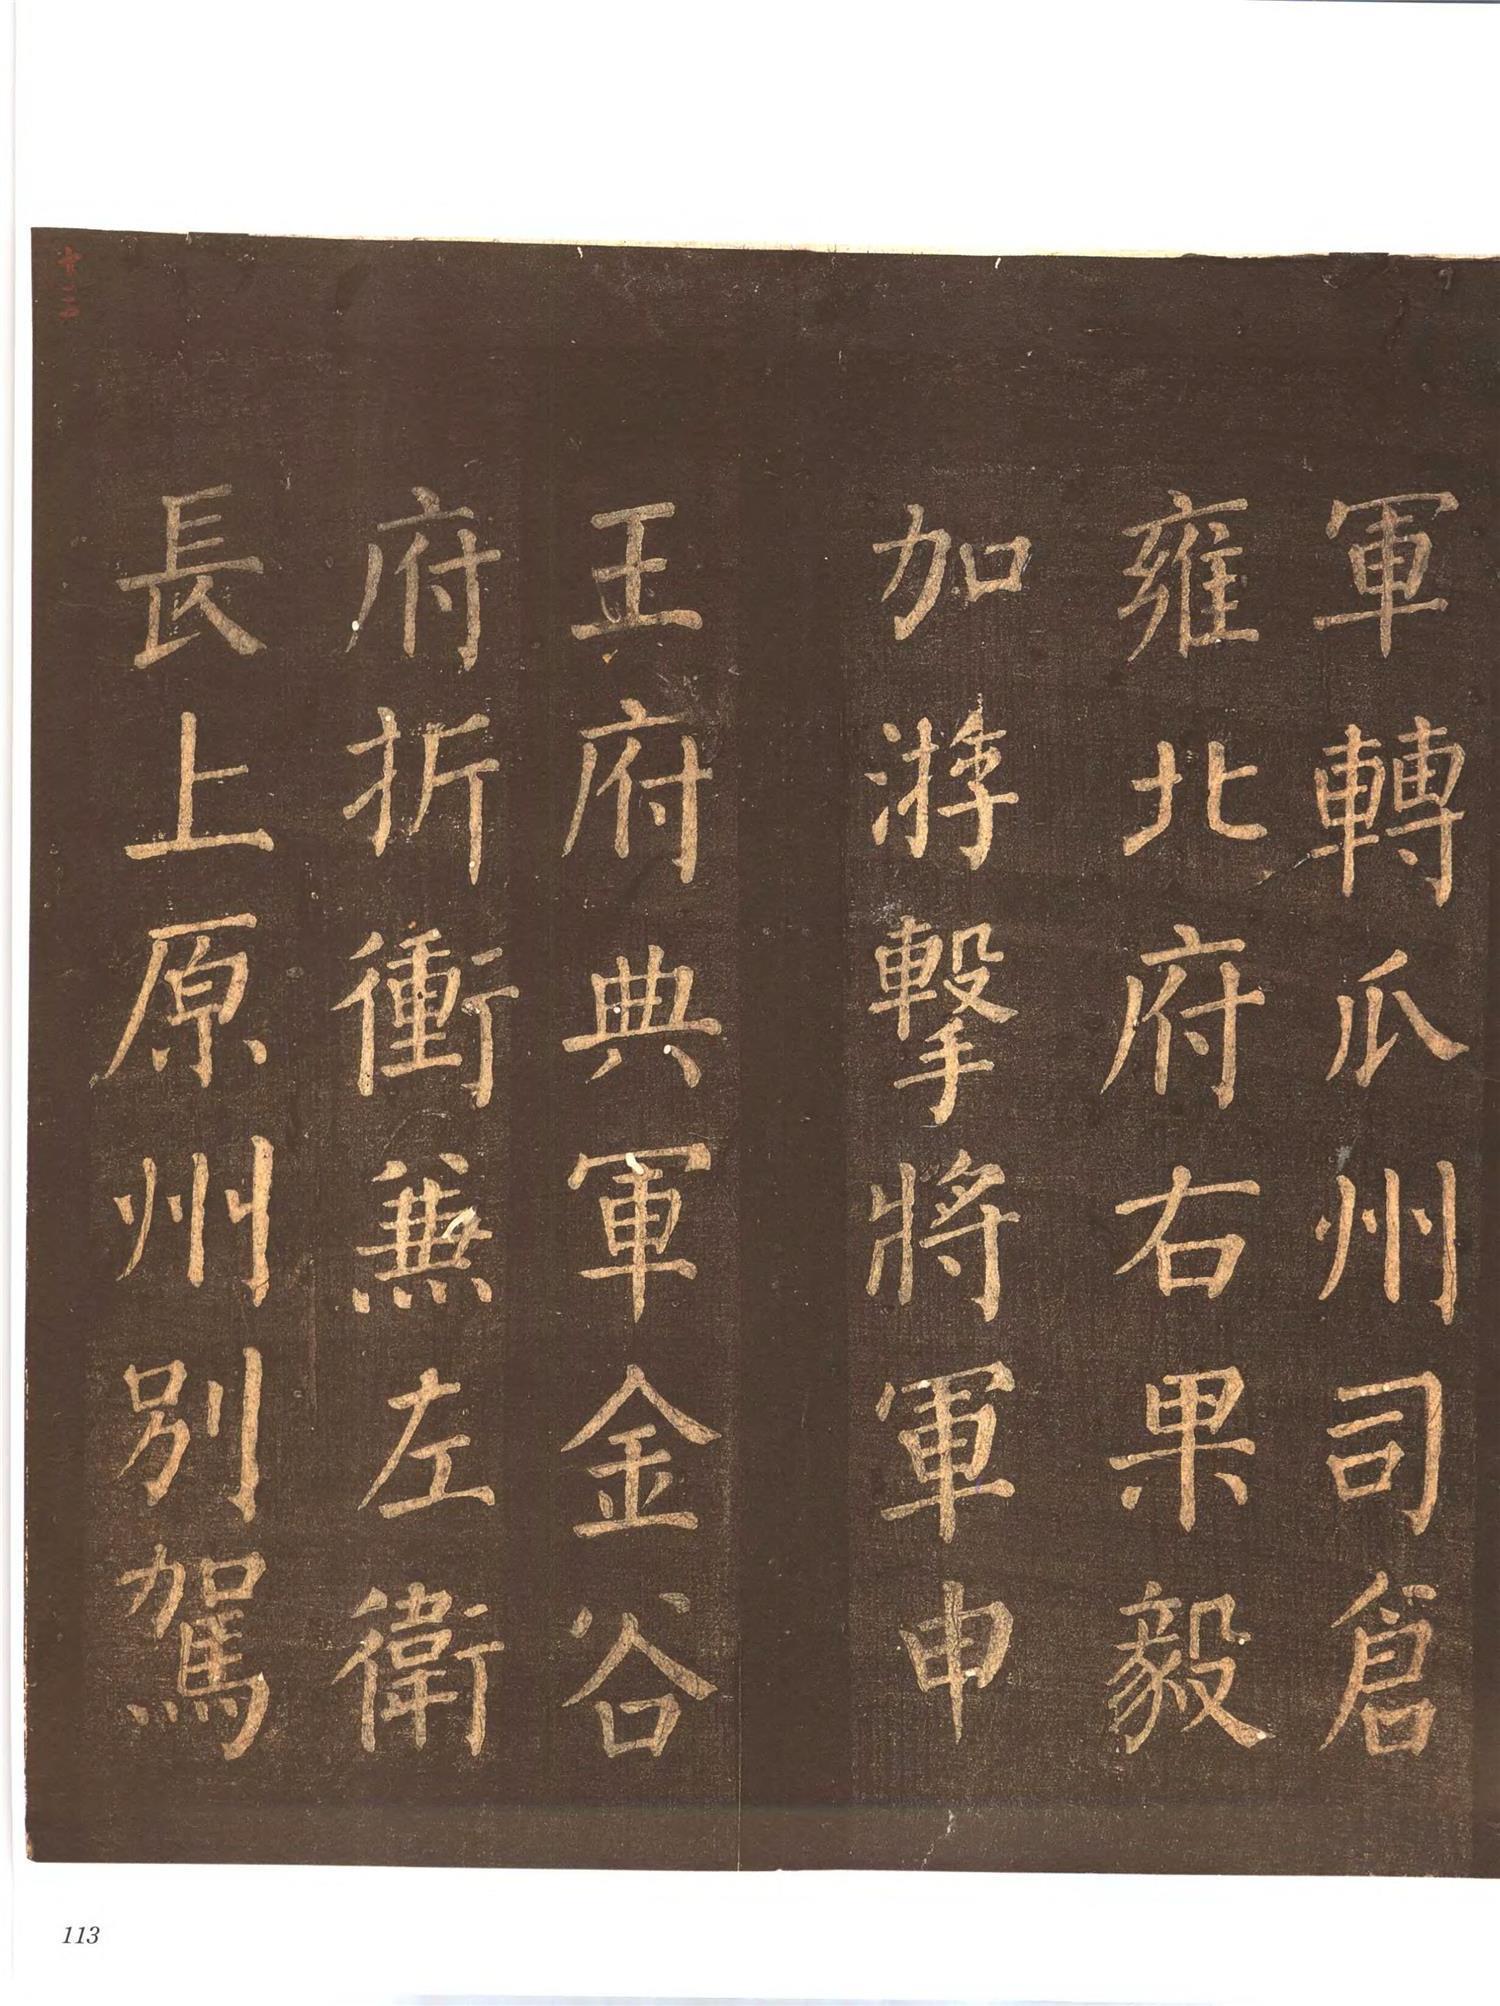 軍轉瓜州司倉
雍北府右果毅
加游擊將軍申
王府典軍金谷
府折衝兼左衛
長上原州別駕
113